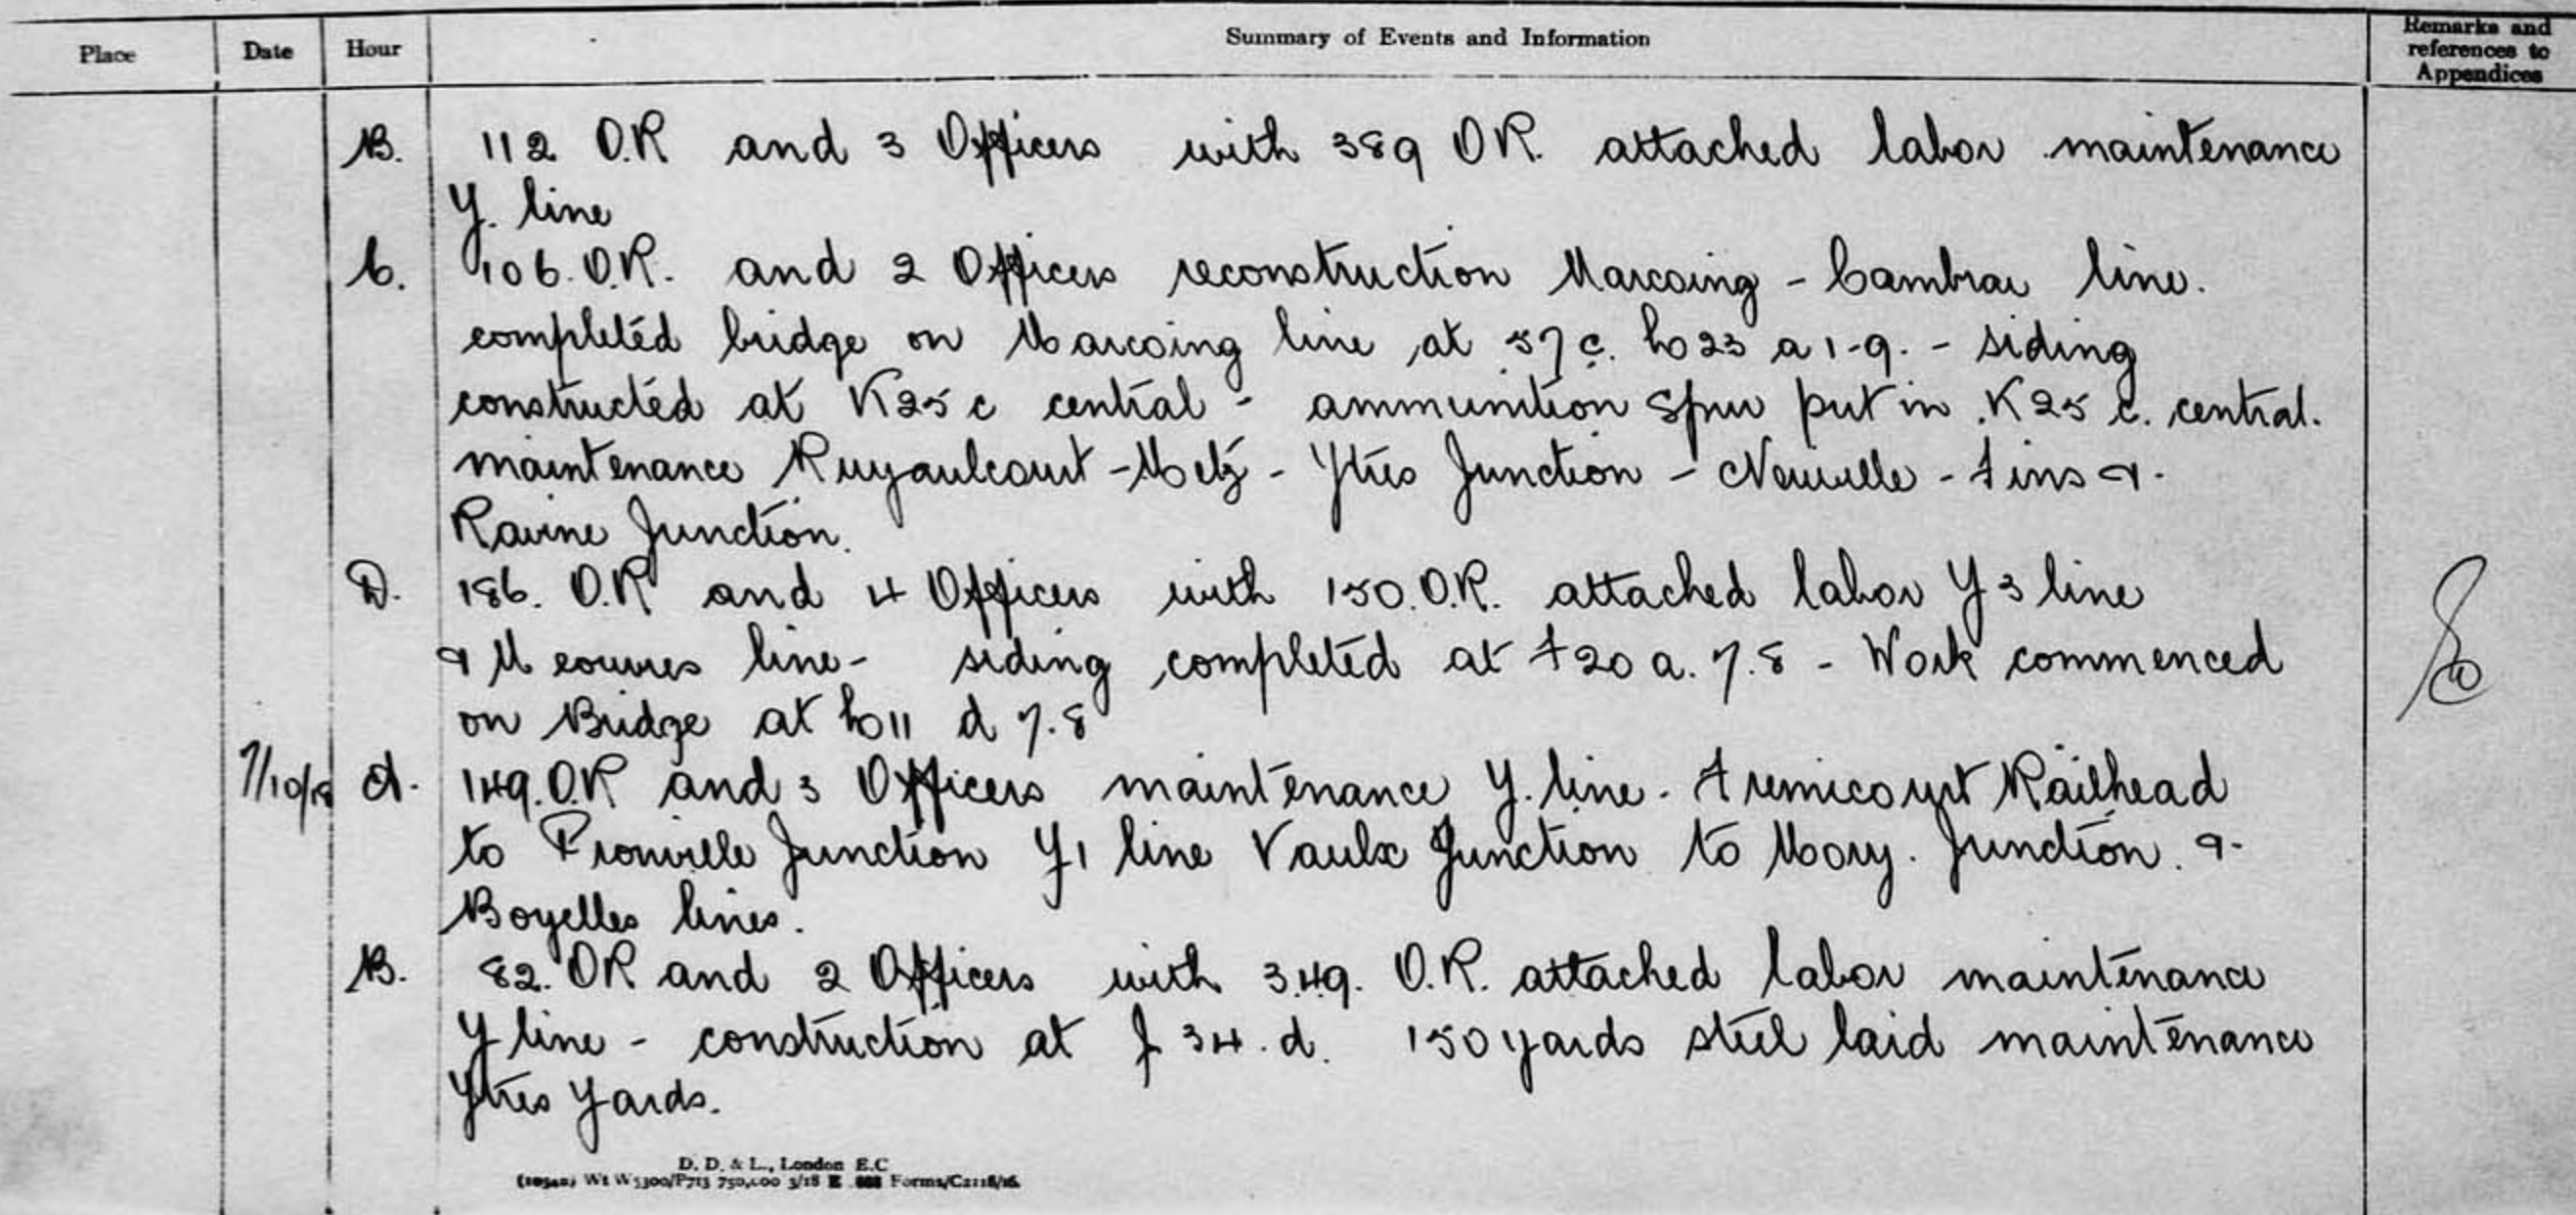 Place Date Hour Summary of Events and Information Remarks and references to Appendices
B. 112 O.R and 3 Officers with 389 OR. attached labor maintenance
Y. line
C. 106. O.R. and 2 Officers reconstruction Marcoing - Cambrai line.
completed bridge on Marcoing line at 57c. L23 a 1-9. - siding
constructed at K25 c central - ammunition spur put in K25 c. central.
maintenance Ruyaulcourt - Metz - Ytres Junction - Neuville - Fins &
Ravine Junction.
D. 186. O.R and 4 Officers with 150. O.R. attached labor Y3 line
& Moeuvres line - siding completed at F20 a. 7.8 - Work commenced
on Bridge at L11 d 7.8
7/10/18 A. 149. O.R and 3 Officers maintenance Y. line - Fremicourt Railhead
to Pronville Junction Y1 line Vaulx Junction to Mory. Junction. &
Boyelles lines.
B. 82. OR and 2 Officers with 349. O.R. attached labor maintenance
Y line - construction at J 34. d. 150 yards steel laid maintenance
Ytres Yards.
D. D. & L., London E.C
Wt W5300/P713 750,000 3/18 E Forms/C2118/16.